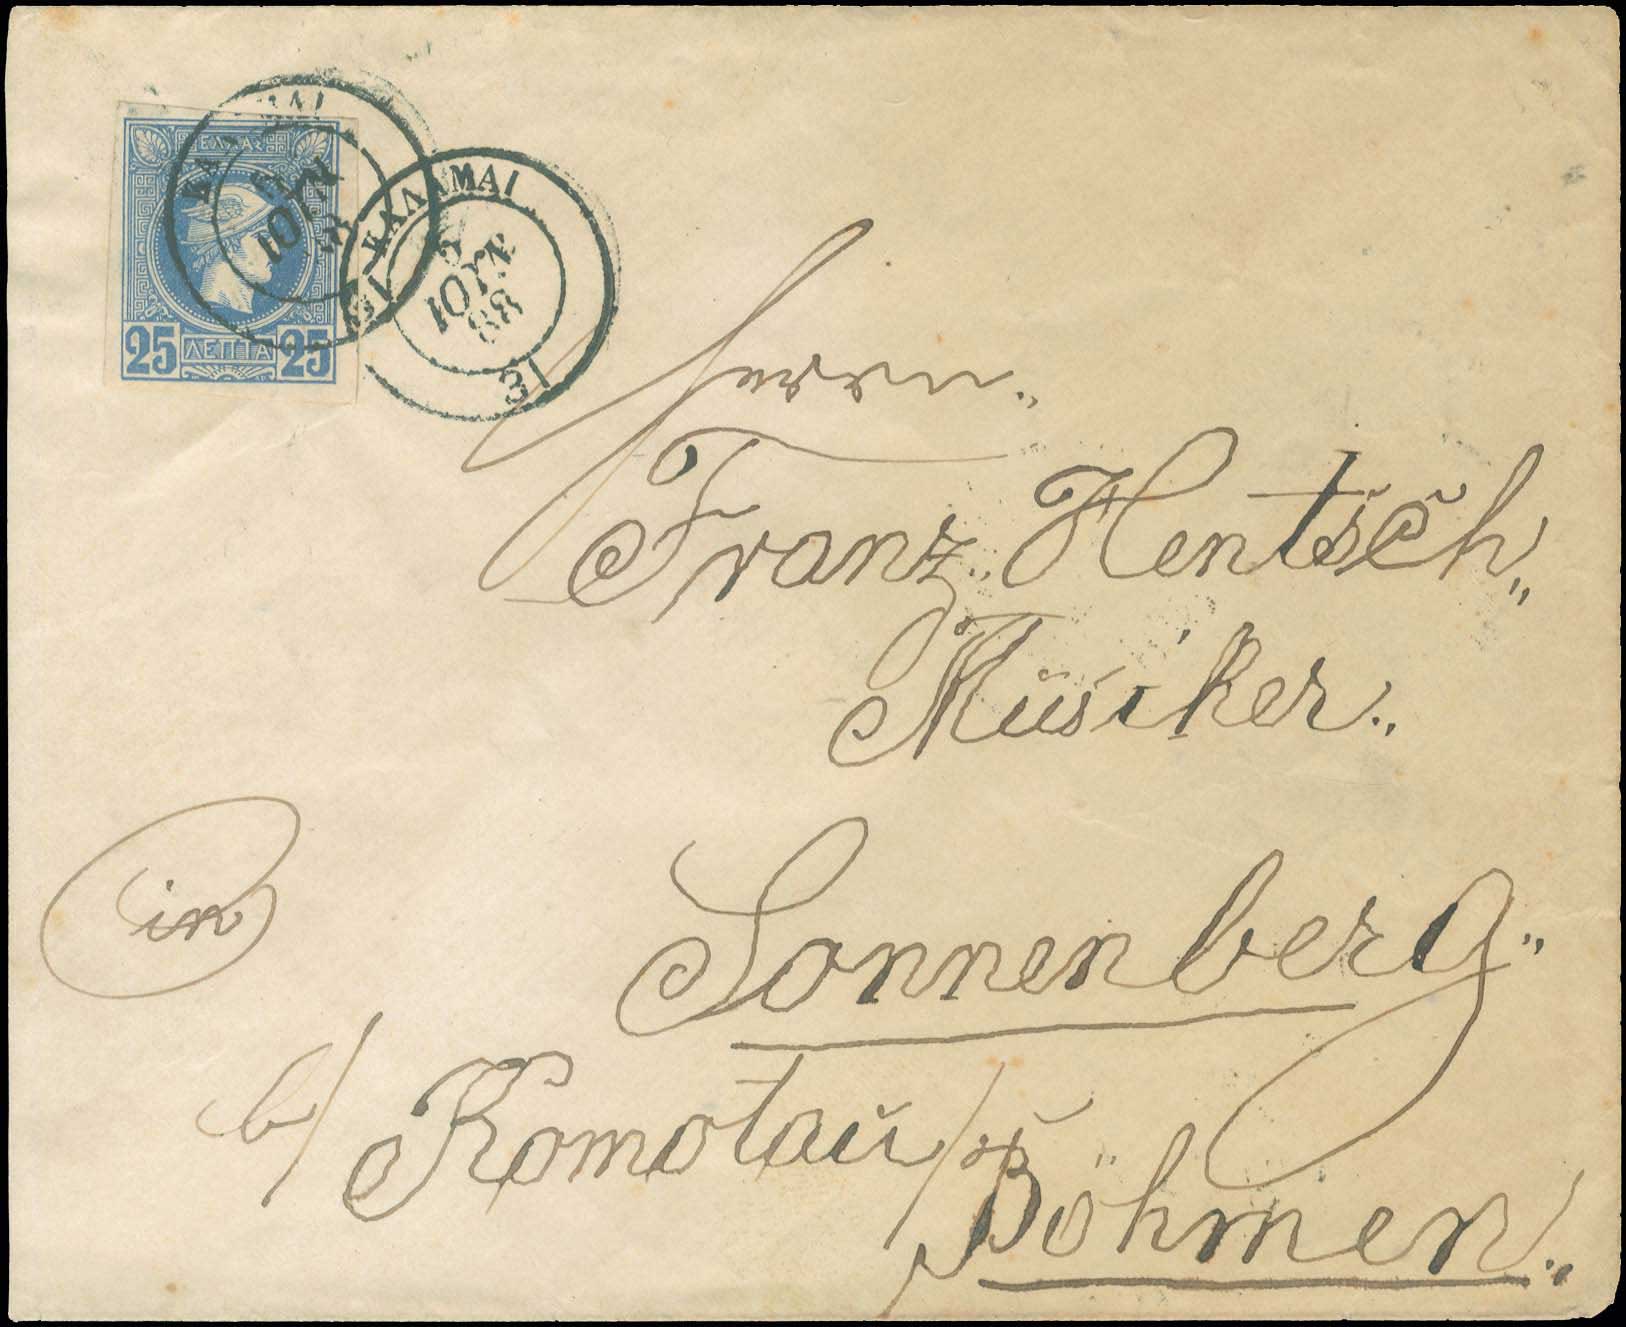 ΕΛΛΑΣ
25 ΛΕΠΤΑ 25
ΚΑΛΑΜΑΙ
ΚΑΛΑΜΑΙ
ΙΟΥΝ
88
Herrn
Franz Hentsch
Musiker
in
Sonnenberg
b/ Komotau /
Böhmen